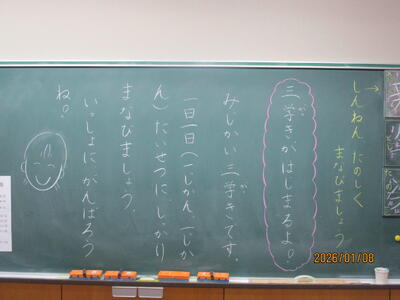 しんねん たのしく
まなびましょう
三学きがはじまるよ？
みじかい三学きです。
一日一日(一じかん、一じか
ん)たいせつに、しっかり
まなびましょう。
いっしょにがんばろう
ね？
2026/01/08